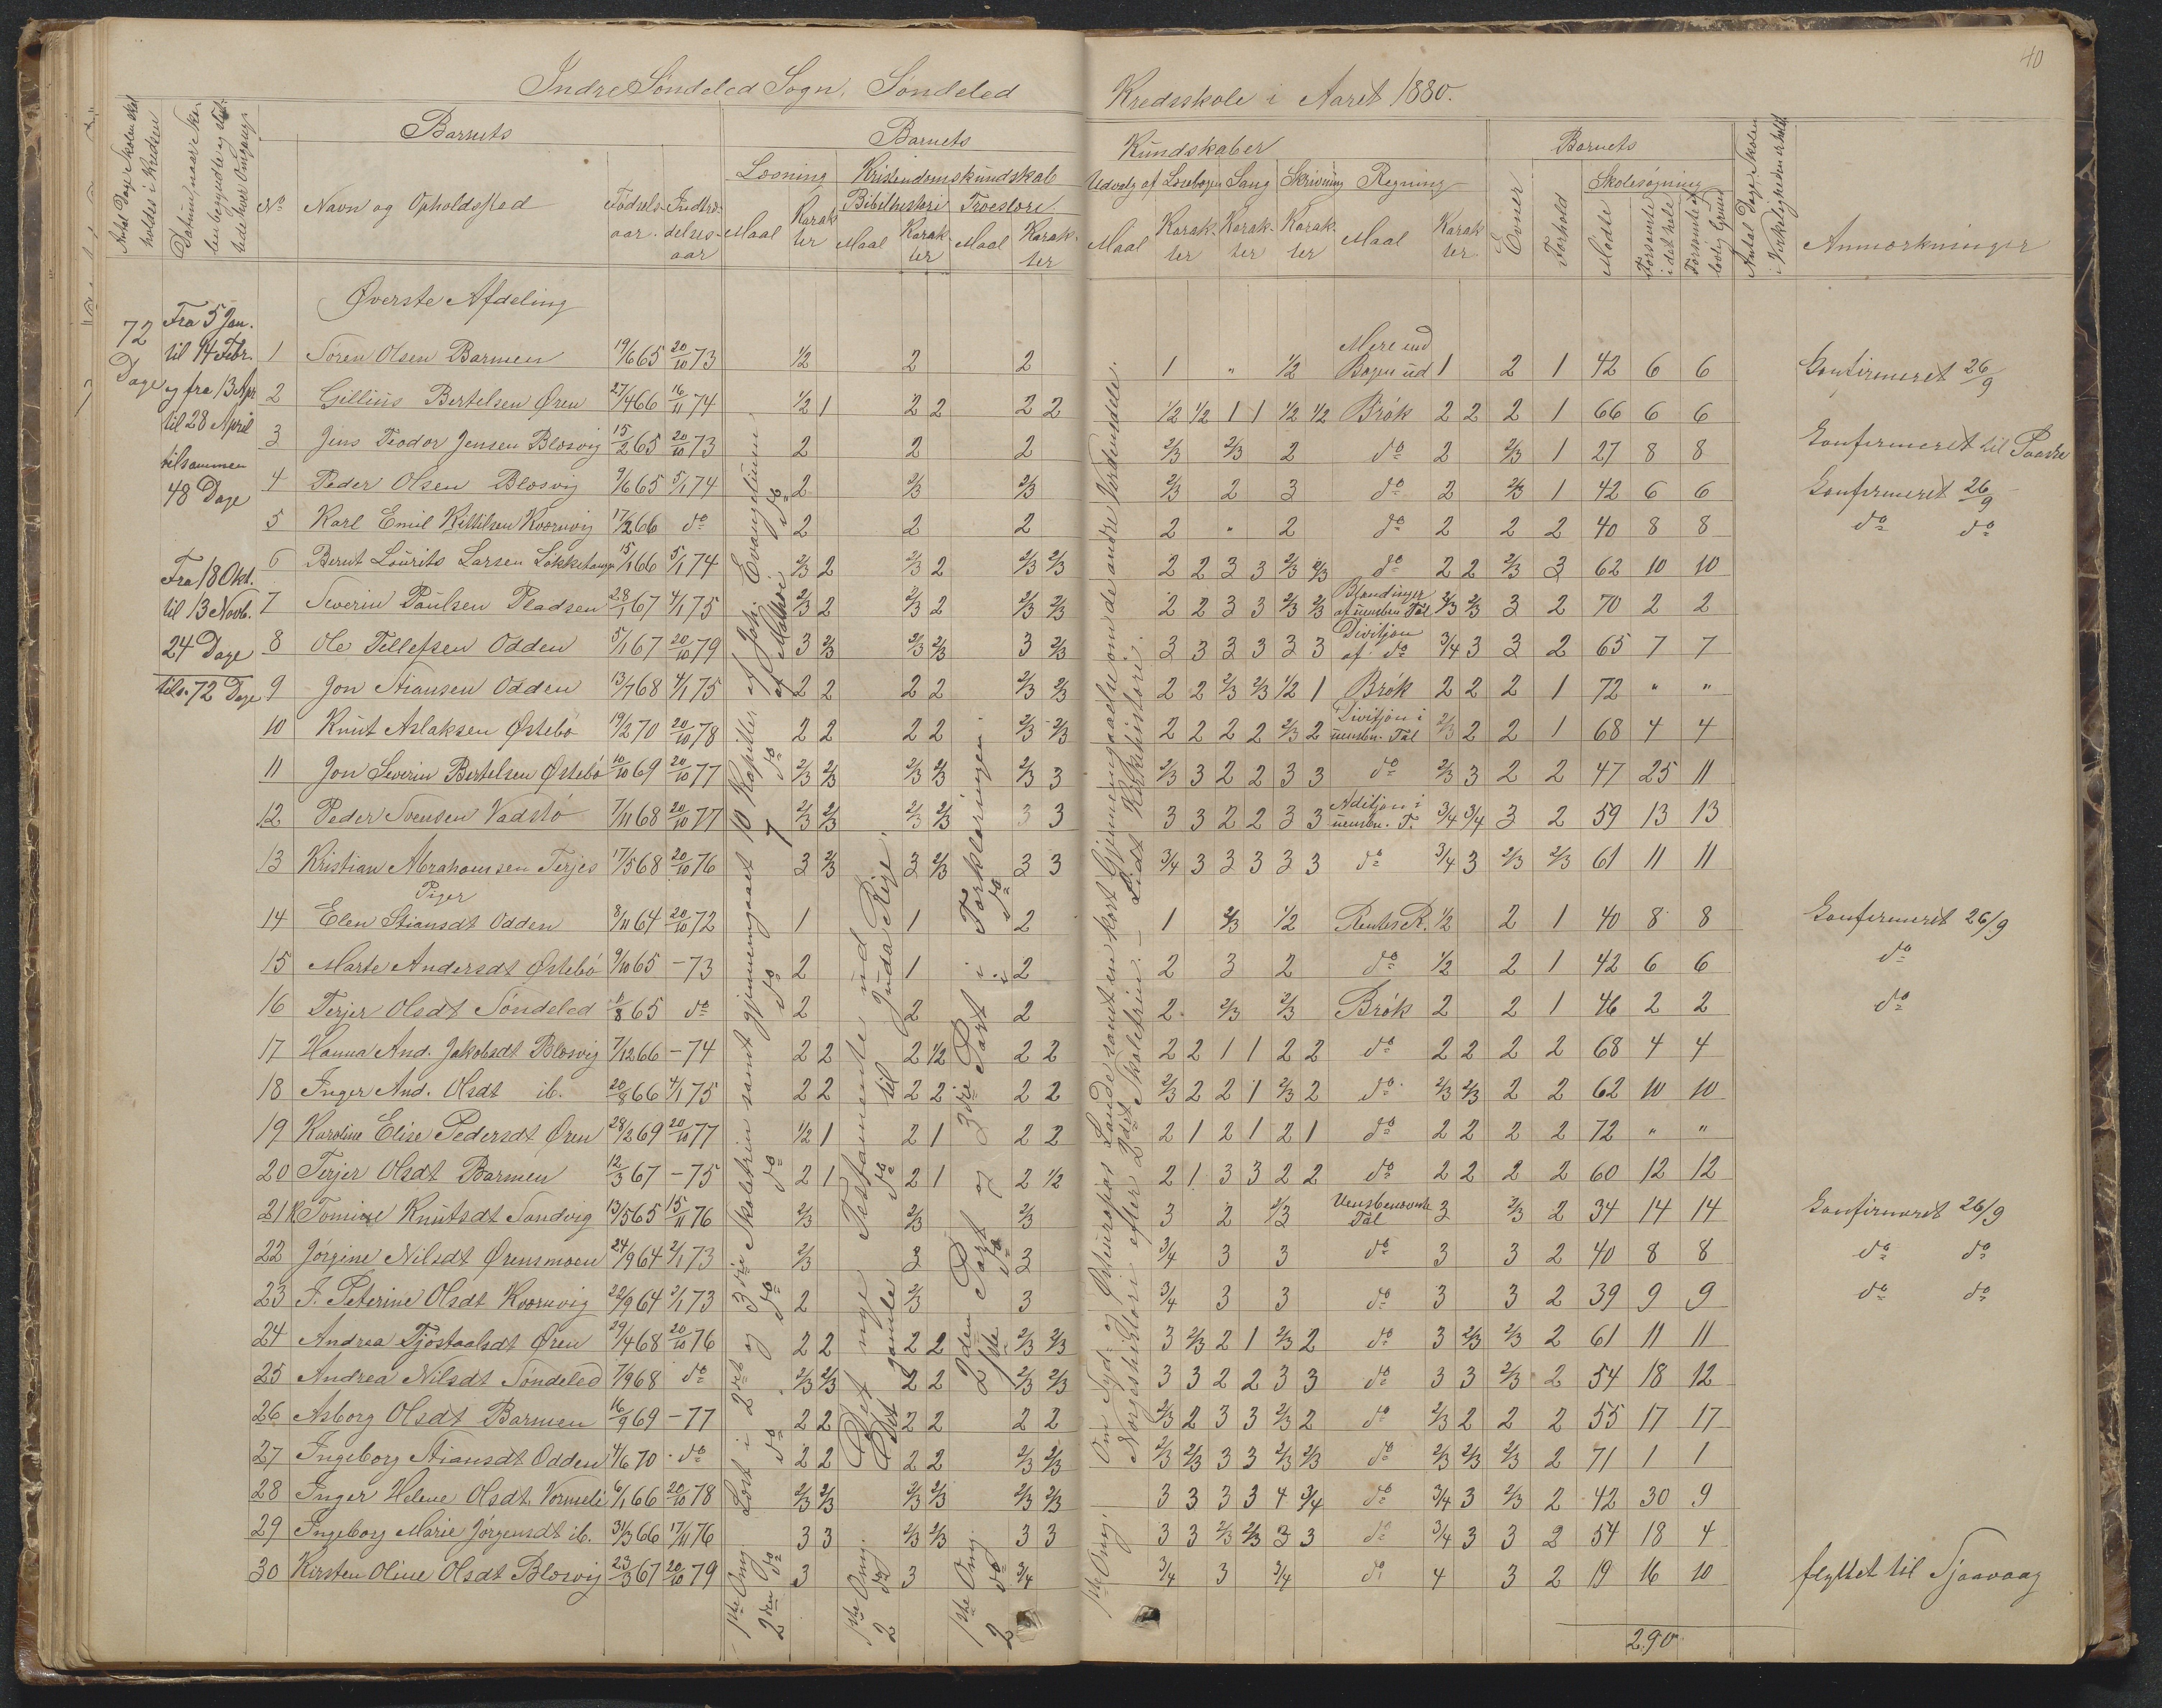 40
Indre Søndeled Sogn, Søndeled Kredsskole i Aaret 1880.
Antal Dage Skolen skal holdes i Kredsen
Datum, naar Skolen begyndte og sluttede hver Omgang
Barnets
No Navn og Opholdssted Fødsels-aar. Indtrædelses-aar
Barnets Kundskaber
Læsning Kristendomskundskab Udvalg af Læsebogen Sang Skrivning Regning
Bibelhistori Troeslære
Maal Karakter Maal Karakter Maal Karakter Maal Karakter Karakter Karakter Maal Karakter
Barnets
Evner Forhold Skolesøgning
Mødte Forsømte i det hele Forsømte af lovlig Grund
Antal Dage Skolen i Virkeligheden er holdt
Anmærkninger
72 Dage
Fra 5 Jan.
til 14 Febr.
og fra 13 Apr
til 28 April
tilsammen
48 Dage
Fra 18 Okt.
til 13 Novb.
24 Dage
tils. 72 Dage
Øverste Afdeling
1 Søren Olsen Barmen 19/6 65 20/10 73 1/2 2 2 1 " 1/2 Mere end Bogen ud 1 2 1 42 6 6 Konfirmeret 26/9
2 Gillius Bertelsen Øren 27/4 66 16/11 74 1/2 1 2 2 2 2 1/2 1/2 1 1 1/2 1/2 Brøk 2 2 2 1 66 6 6
3 Jens Teodor Jensen Blosvig 15/2 65 20/10 73 2 2 2 2/3 2/3 2 do 2 2/3 1 27 8 8 Konfirmeret til Paaske
4 Peder Olsen Blosvig 9/6 65 5/1 74 2 2/3 2/3 2/3 2 3 do 2 2/3 1 42 6 6 Konfirmeret 26/9
5 Karl Emil Kittilsen Kvornvig 17/2 66 do 2 2 2 2 " 2 do 2 2 2 40 8 8 do do
6 Bernt Lourits Larsen 15/1 66 5/1 74 2/3 2 2/3 2 2/3 2/3 2 2 3 3 2/3 2/3 do 2 2 2/3 3 62 10 10
7 Severin Paulsen Pladsen 28/1 67 4/1 75 2/3 2 2/3 2 2/3 2/3 2 2 3 3 2/3 2/3 Blandinger af uensbn Tal 2/3 2/3 3 2 70 2 2
8 Ole Tellefsen Odden 5/1 67 20/10 79 3 2/3 2/3 2/3 3 2/3 3 3 3 3 3 3 Divisjon af do 3/4 3 3 2 65 7 7
9 Jon Stiansen Odden 13/7 68 4/1 75 2 2 2 2 2/3 2/3 2 2 2/3 2/3 1/2 1 Brøk 2 2 2 1 72 " "
10 Knut Aslaksen Østebø 19/2 70 20/10 78 2 2 2 2 2/3 2/3 2 2 2 2 2/3 2 Divisjon i uensbn. Tal 2/3 2 2 1 68 4 4
11 Jon Severin Bertelsen Østebø 10/10 69 20/10 77 2/3 2/3 2/3 2/3 2/3 3 2/3 3 2 2 3 3 do 2/3 3 2 2 47 25 11
12 Peder Svensen Vadstø 7/11 68 20/10 77 2/3 2/3 2/3 2/3 3 3 3 3 2 2 3 3 Aditjon i uensbn. T. 3/4 3/4 3 2 59 13 13
13 Kristian Abrahamsen Terjes 17/5 68 20/10 76 3 2/3 3 2/3 3 3 3/4 3 3 3 3 3 do 3/4 3 2/3 2/3 61 11 11
Piger
14 Elen Stiansdt Odden 8/11 64 20/10 72 1 1 2 1 2/3 1/2 Rentes R. 1/2 2 1 40 8 8 Konfirmeret 26/9
15 Marte Andersdt Østebø 9/10 65 - 73 2 1 2 2 3 2 do 1/2 2 1 42 6 6 do
16 Terjer Olsdt Søndeled 1/8 65 do 2 2 2 2 2/3 2/3 Brøk 2 2 1 46 2 2 do
17 Hanna And. Jakobsdt Blosvig 7/12 66 - 74 2 2 2 1/2 2 2 2 2 1 1 2 2 do 2 2 2 2 68 4 4
18 Inger And. Olsdt ib. 20/8 66 4/1 75 2 2 2 2 2 2 2/3 2 2 1 2/3 2 do 2/3 2/3 2 2 62 10 10
19 Karoline Elise Pedersdt Øren 28/2 69 20/10 77 1/2 1 2 1 2 2 2 1 2 1 2 1 do 2 2 2 2 72 " "
20 Terjer Olsdt Barmen 12/3 67 - 75 2 1 2 1 2 1/2 2 1 3 3 2 2 do 2 2 2 2 60 12 12
21 Tomine Knutsdt Sandvig 13/5 65 15/11 76 2/3 2/3 2/3 3 2 2/3 Uensbenævnte Tal 3 2/3 2 34 14 14 Konfirmeret 26/9
22 Jørgine Nilsdt Ørensmoen 24/9 64 2/1 73 2/3 3 3 3/4 3 3 do 3 3 2 40 8 8 do do
23 J. Peterine Olsdt Kvornvig 22/9 64 2/1 73 2 2/3 3 3/4 3 3 do 3 3 2 39 9 9 do do
24 Andrea Tjøstaalsdt Øren 29/4 68 20/10 76 2 2 2 2 2/3 2/3 3 2/3 2 1 2/3 2 do 3 2/3 2/3 2 61 11 11
25 Andrea Nilsdt Søndeled 7/9 68 do 2/3 2/3 2 2 2/3 2/3 3 3 2 2 3 3 do 3 3 2/3 2 54 18 12
26 Asborg Olsdt Barmen 16/9 69 - 77 2 2 2 2 2 2 2/3 2 3 3 2/3 2 do 2/3 2 2 2 55 17 17
27 Ingeborg Stiansdt Odden 4/6 70 do 2 2 2 2 2/3 2/3 2/3 2/3 3 3 2/3 2/3 do 2/3 2/3 2/3 2 71 1 1
28 Inger Helene Olsdt. Vormeli 6/1 66 20/10 78 2/3 2/3 2/3 2/3 2/3 2/3 3 3 3 3 4 3/4 do 3/4 3 2/3 2 42 30 9
29 Ingeborg Marie Jørgensdt ib. 31/3 66 17/11 76 3 3 2/3 2/3 3 3 3 3 2/3 2/3 3 3 do 3/4 3 3 2 54 18 4
30 Kirsten Oline Olsdt Blosvig 23/3 67 20/10 79 3 3 3/4 3/4 3 3/4 do 4 3 2 19 16 10 flyttet til Sjaavaag
290
1ste Omg. Læst i 2det og 3die Skoletrin samt gjennemgaaet 10 Kapitler af Joh. Evangelium
2den do do do do do 7 do af Mathæi do
1ste Omg. Det nye Testamente ud
2 do Det gamle do til Juda Rige
1ste Omg. 2den Part og 3die Part i Forklaringen
2 do 1ste do i do
1ste Omg. Om Syd- og Østeuropas Lande samt en kort Gjennemgaaelse om de andre Verdensdele.
Norgeshistori efter 2det Skoletrin. - Lidt Kirkehistori.